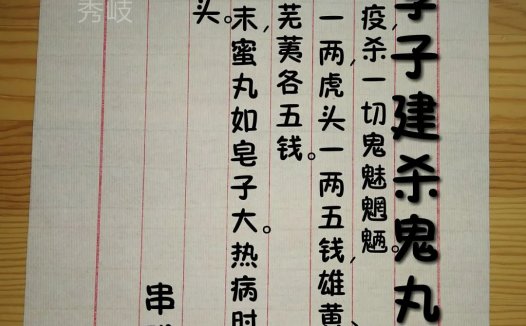 子建杀鬼丸
疫,杀一切鬼魅魍魉。
一两虎头一两五钱,雄黄、
芜荑各五钱。
末蜜丸如皂子大。热病时
头。
串
秀岐